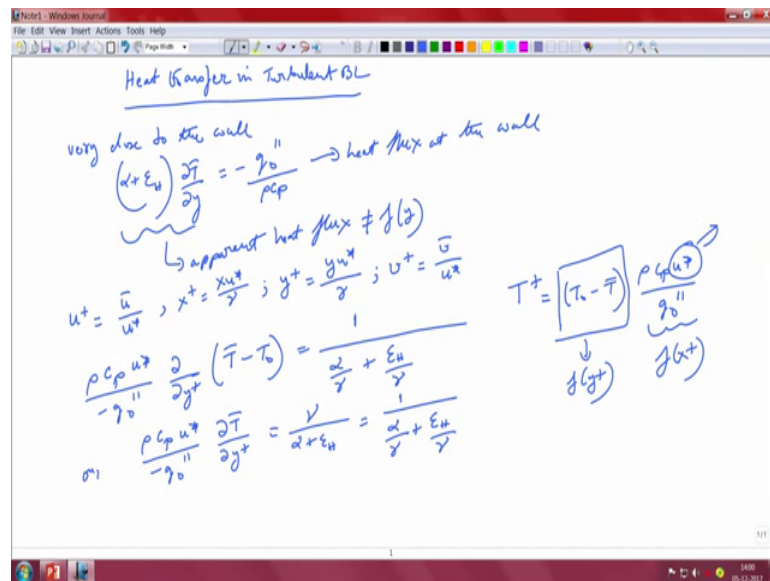 Note1 - Windows Journal
File Edit View Insert Actions Tools Help
Page Width
B I
Heat transfer in Turbulent BL
very close to the wall
(α + ε_H) ∂T̄/∂y = - q₀"/ρCp → heat flux at the wall
↳ apparent heat flux ≠ f(y)
u⁺ = ū/u*, x⁺ = xu*/γ ; y⁺ = yu*/γ ; υ⁺ = ῡ/u*
T⁺ = (T₀ - T̄) ρCpu*/q₀"
f(y⁺) f(x⁺)
ρCpu*/-q₀" ∂/∂y⁺ (T̄ - T₀) = 1/(α/γ + ε_H/γ)
or, ρCpu*/-q₀" ∂T̄/∂y⁺ = γ/(α + ε_H) = 1/(α/γ + ε_H/γ)
1/1
1
14:00
05-12-2017